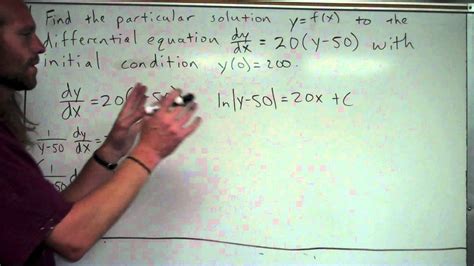 Find the particular solution y=f(x) to the
differential equation dy/dx = 20(y-50) with
initial condition y(0)=200.
dy/dx = 20( 5
ln|y-50|=20x + C
1/y-50 dy/dx =